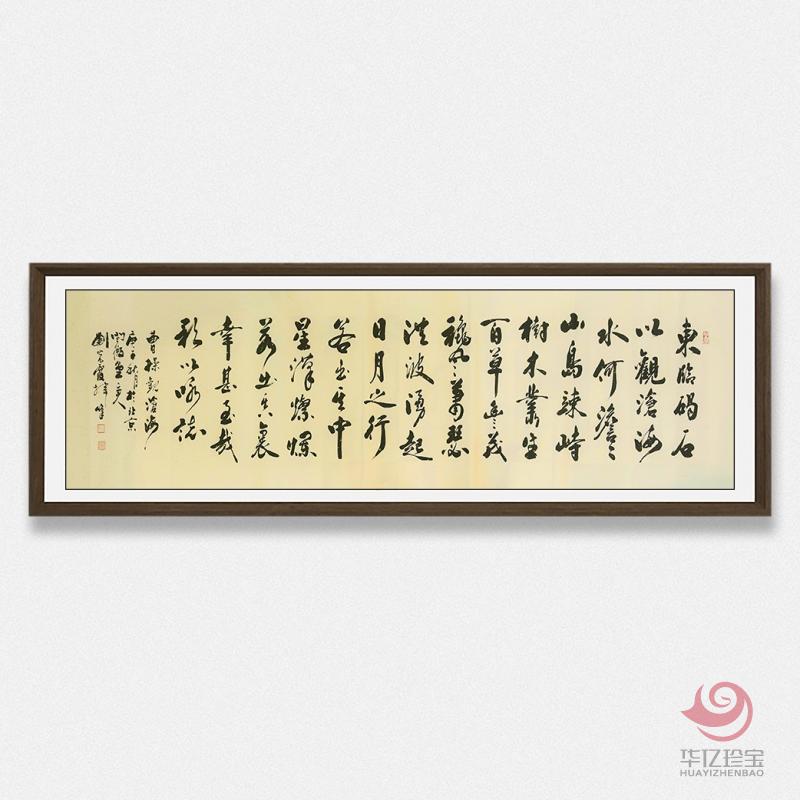 東臨碣石
以觀滄海
水何澹〻
山島竦峙
樹木叢生
百草豐茂
秋風蕭瑟
洪波湧起
日月之行
若出其中
星漢燦爛
若出其裏
幸甚至哉
歌以咏志
曹操觀滄海
庚子秋月於北京
華亿珍宝
HUAYIZHENBAO